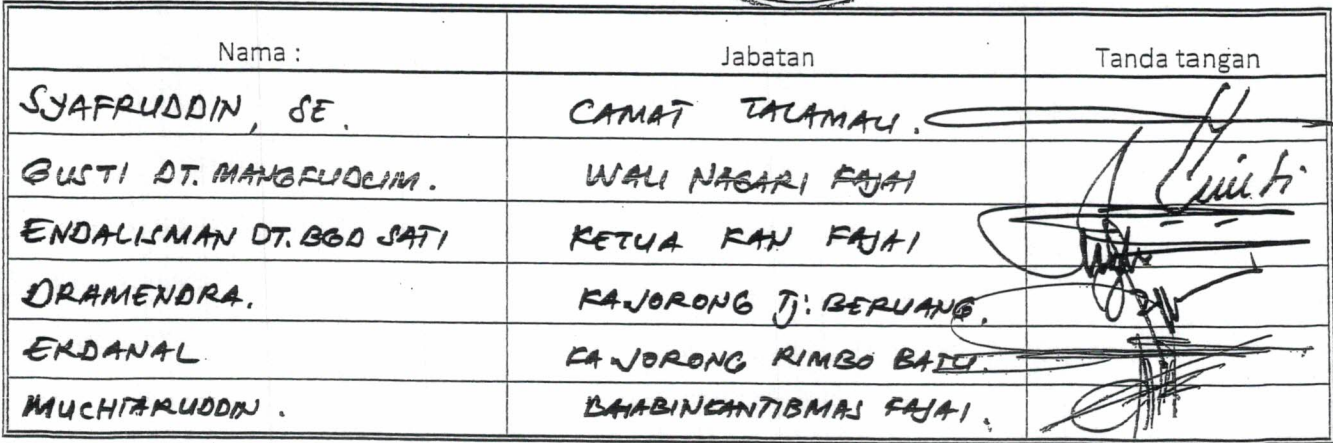 Nama : Jabatan Tanda tangan
SYAFRUDDIN, SE. CAMAT TALAMAU.
GUSTI DT. WALI NAGARI KAJAI
ENDALISMAN DT. BGD SATI KETUA KAN KAJAI
DRAMENDRA. KA.JORONG Tj. BERUANG.
ERDANAL KA JORONG RIMBO BATU.
MUCHTARUDDIN. BHABINKANTIBMAS KAJAI.